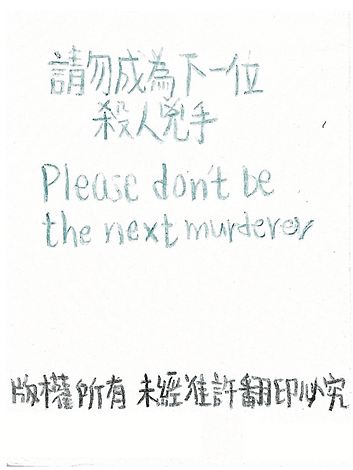 請勿成為下一位
殺人兇手
Please don't be
the next murderer
版權所有 未經准許翻印必究